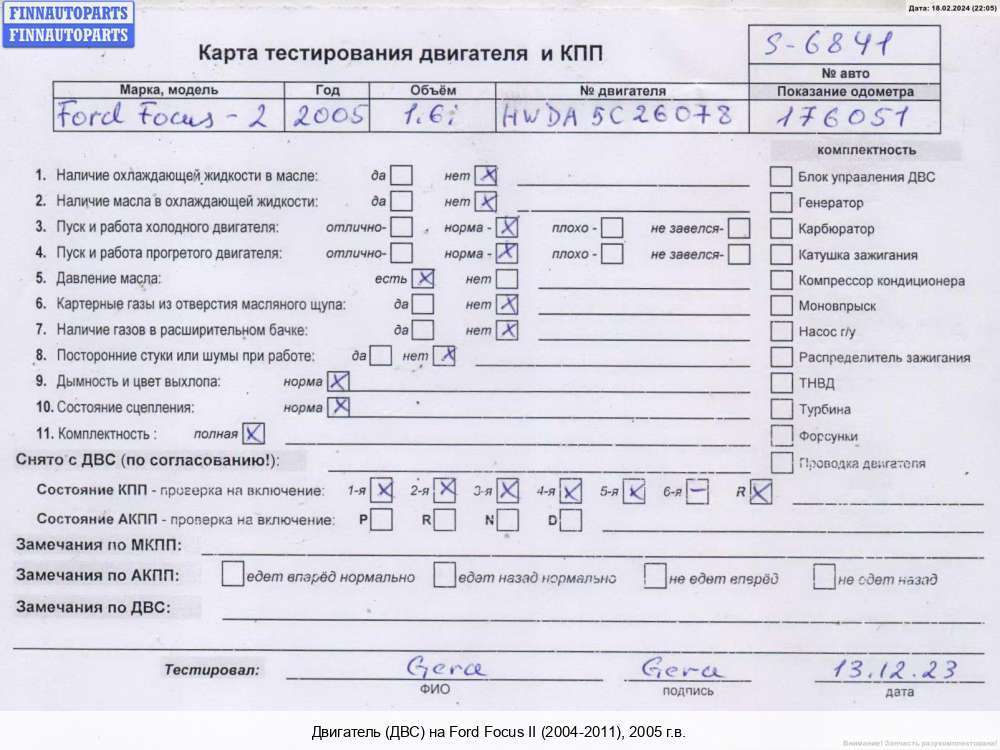 FINNAUTOPARTS
FINNAUTOPARTS
Дата: 18.02.2024 (22:05)
Карта тестирования двигателя и КПП
S-6841
№ авто
Марка, модель Год Объём № двигателя Показание одометра
Ford Focus - 2 2005 1.6i HWDA 5C26078 176051
комплектность
1. Наличие охлаждающей жидкости в масле: да нет X Блок управления ДВС
2. Наличие масла в охлаждающей жидкости: да нет X Генератор
3. Пуск и работа холодного двигателя: отлично- норма - X плохо - не завелся- Карбюратор
4. Пуск и работа прогретого двигателя: отлично- норма - X плохо - не завелся- Катушка зажигания
5. Давление масла: есть X нет Компрессор кондиционера
6. Картерные газы из отверстия масляного щупа: да нет X Моновпрыск
7. Наличие газов в расширительном бачке: да нет X Насос г/у
8. Посторонние стуки или шумы при работе: да нет X Распределитель зажигания
9. Дымность и цвет выхлопа: норма X ТНВД
10. Состояние сцепления: норма X Турбина
11. Комплектность : полная X Форсунки
Снято с ДВС (по согласованию!): Проводка двигателя
Состояние КПП - проверка на включение: 1-я X 2-я X 3-я X 4-я X 5-я X 6-я – R X
Состояние АКПП - проверка на включение: P R N D
Замечания по МКПП:
Замечания по АКПП: едет вперёд нормально едет назад нормально не едет вперёд не едет назад
Замечания по ДВС:
Тестировал: Gera Gera 13.12.23
ФИО подпись дата
Двигатель (ДВС) на Ford Focus II (2004-2011), 2005 г.в.
Внимание! Запчасть разукомплектована!